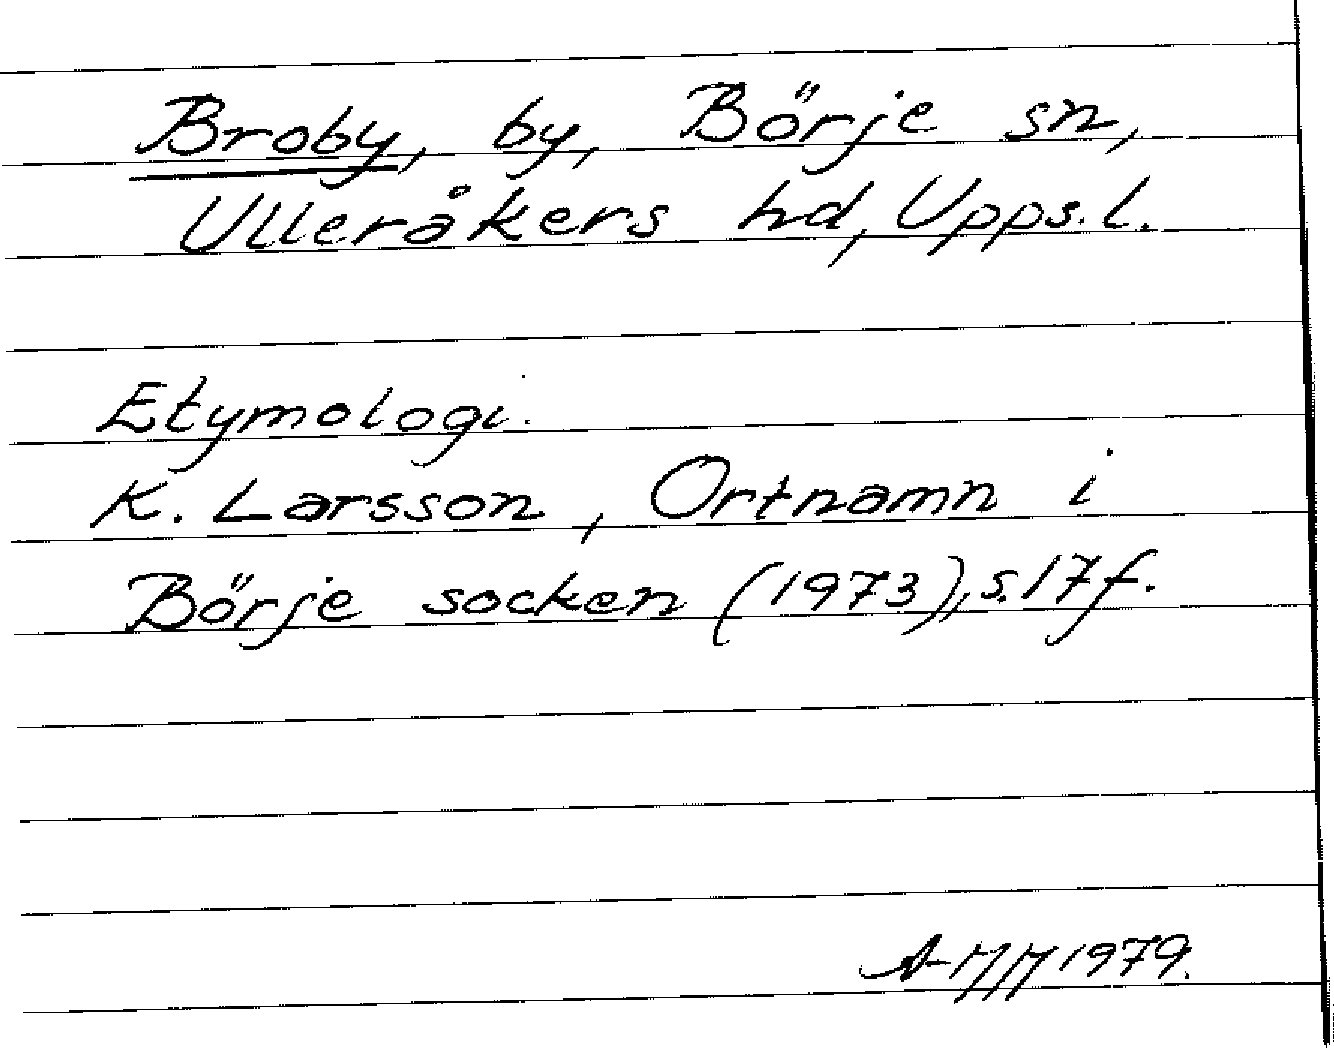 Broby, by, Börje sn,
Ulleråkers hd, Upps. l.
Etymologi.
K. Larsson, Ortnamn i
Börje socken (1973), s. 17 f.
1979.